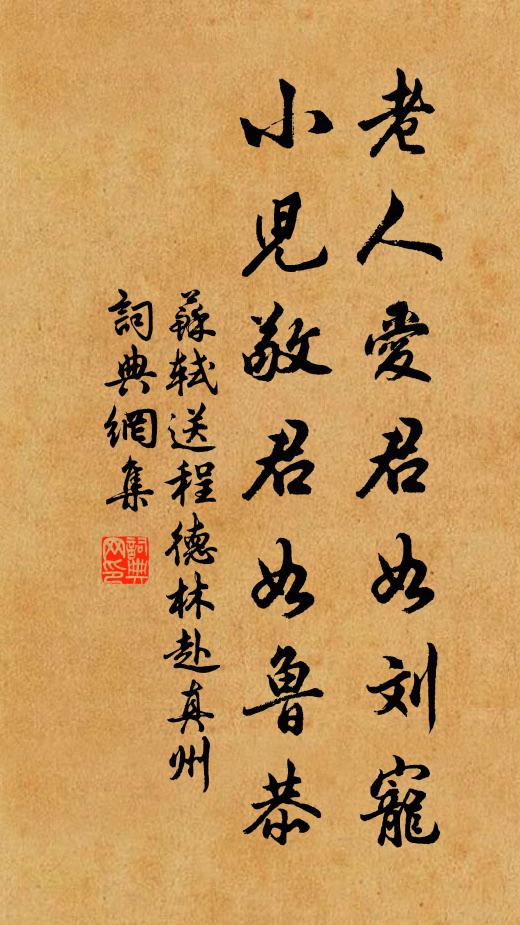 老人愛君如刘寵
小児敬君如魯恭
蘇軾送程德林赴真州
詞典網集
詞典网印